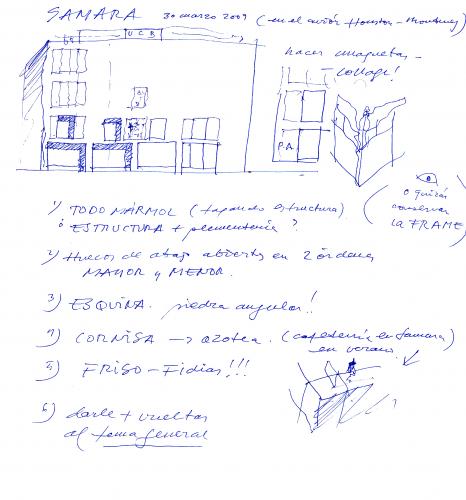 SAMARA 30 marzo 2009 (en el avión Houston - Monterrey)
UCR
hacer maquetas -
- collage!
P.A.
o quizás
conservar
la FRAME
1) TODO MÁRMOL (tapando estructura)
ó ESTRUCTURA + plementería ?
2) Huecos de abajo abiertos en 2 órdenes
MAYOR y MENOR.
3) ESQUINA. piedra angular!!
4) CORNISA → azotea. (cafetería en Samara)
en verano
5) FRISO - Fidias!!!
6) darle + vueltas
al tema general